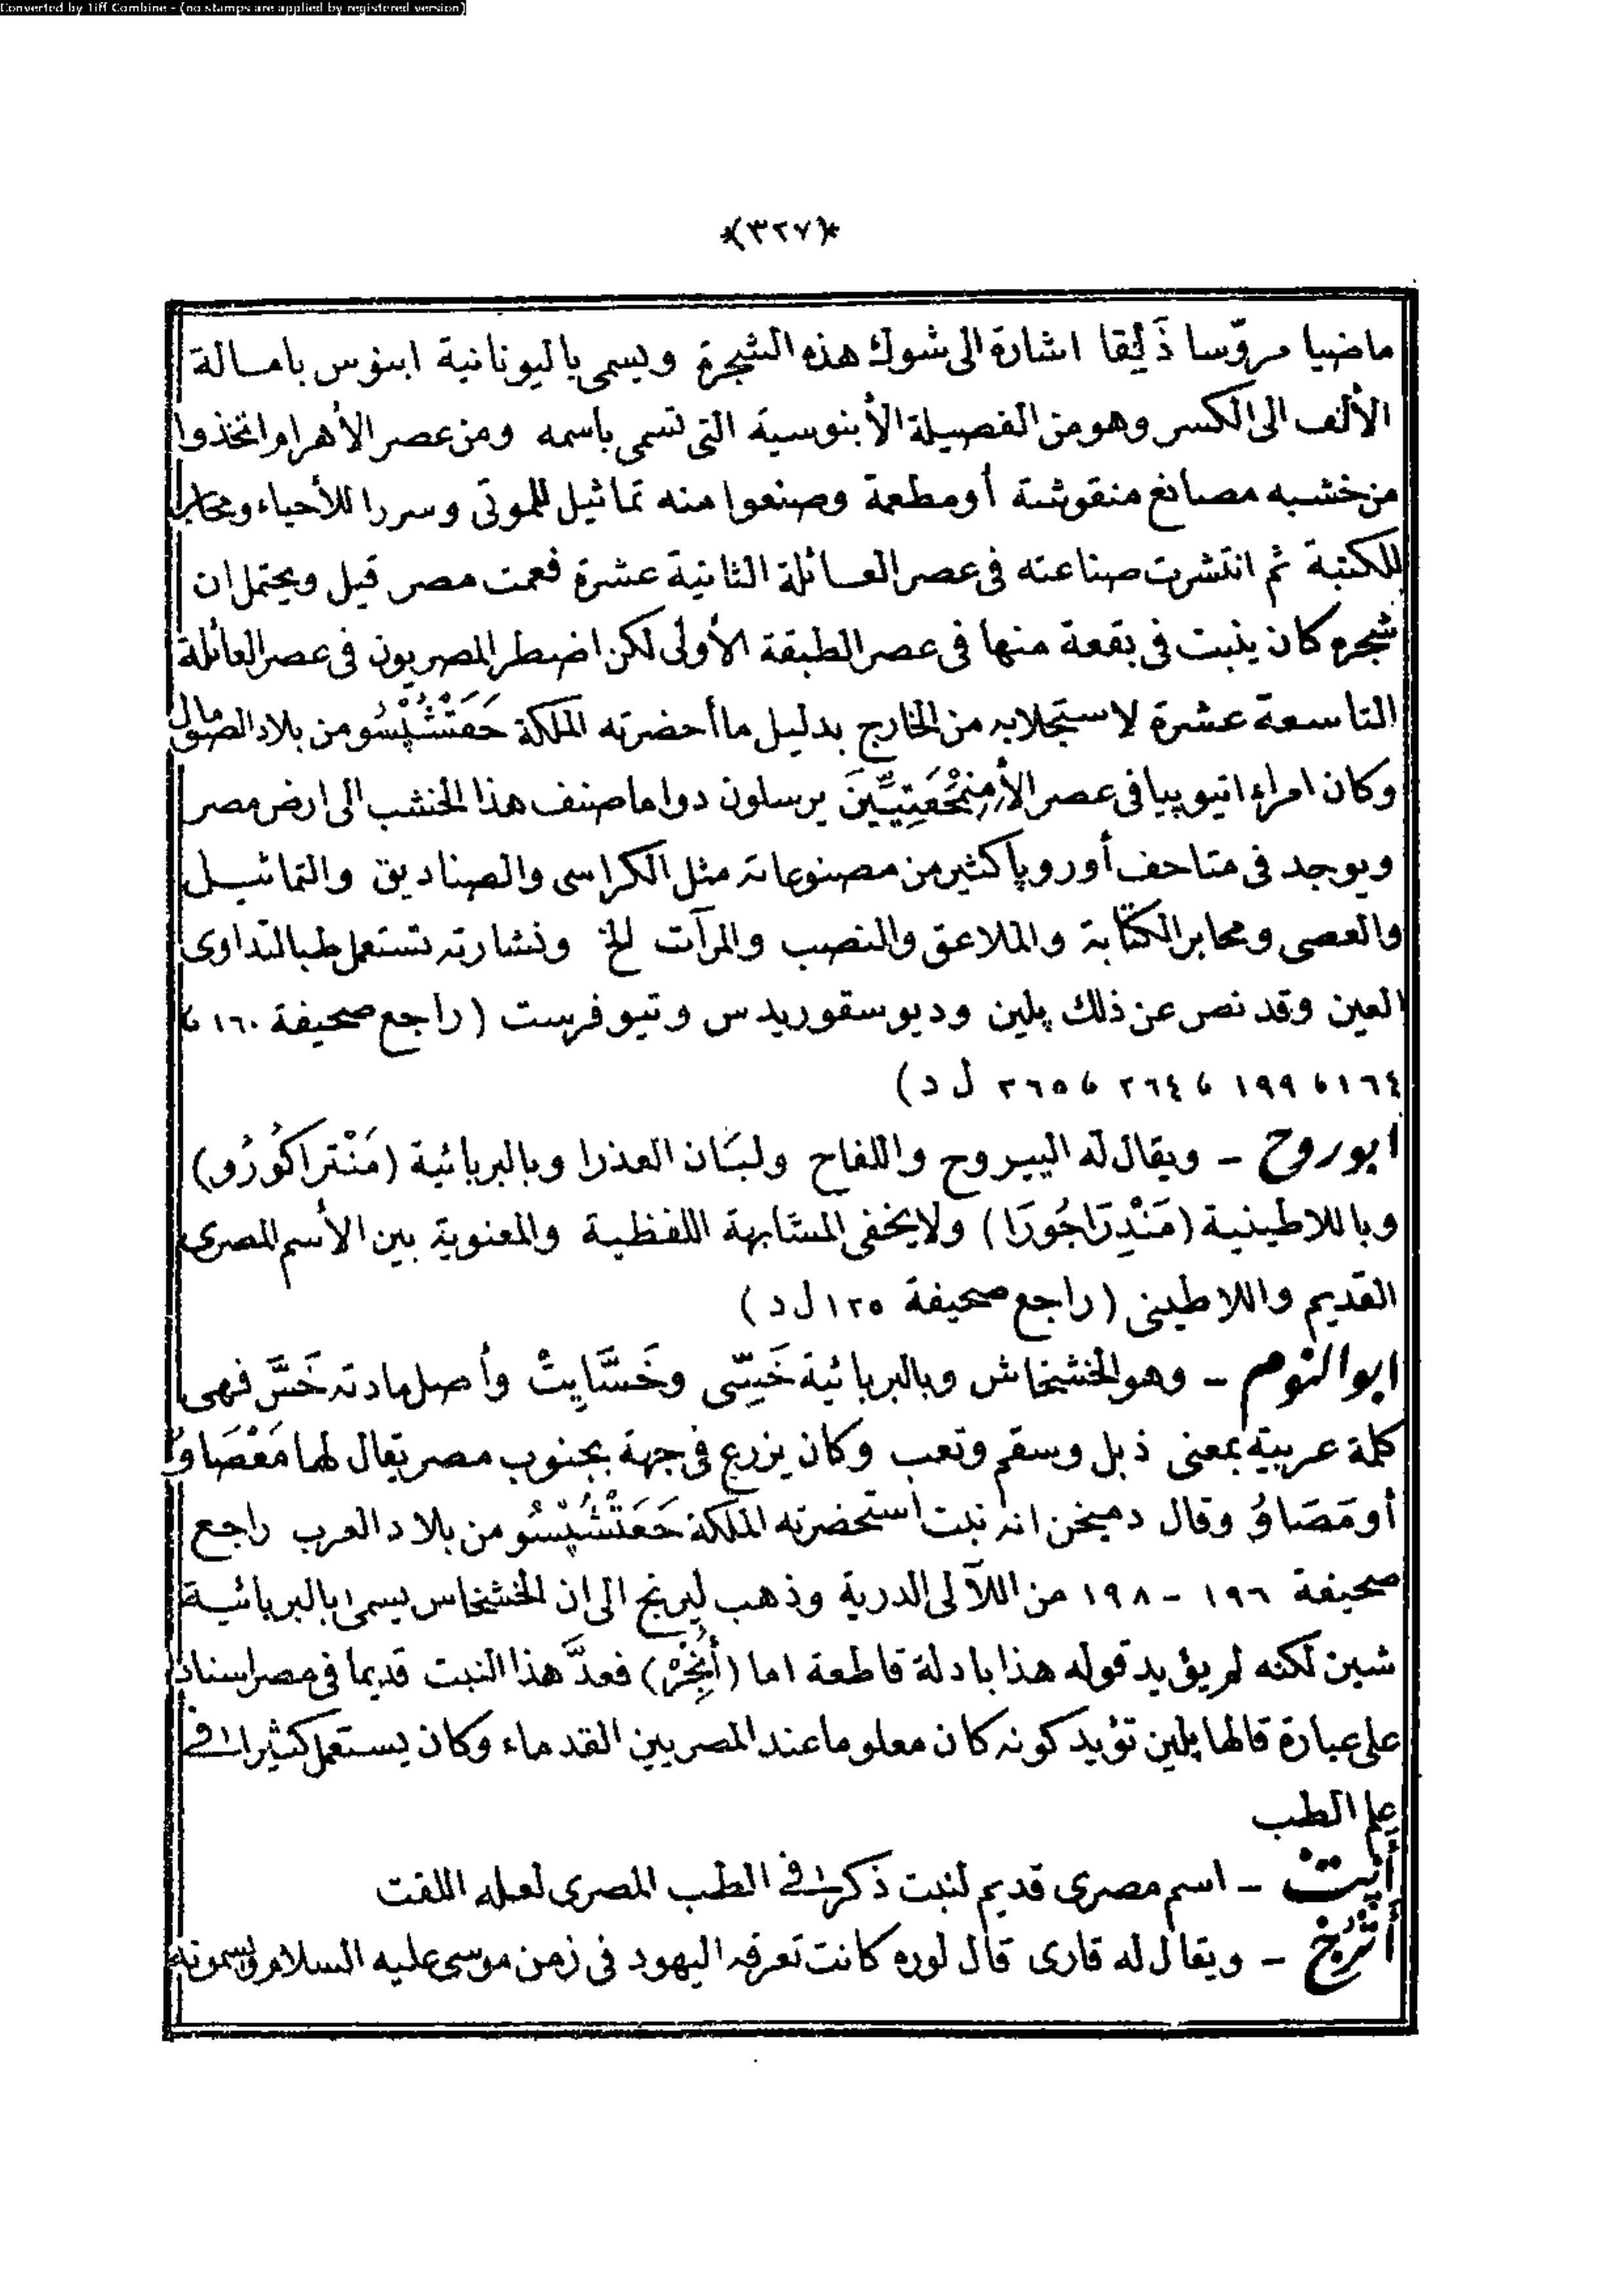 Converted by Tiff Combine - (no stamps are applied by registered version)
*(٣٢٧)*
ماضيا مروّسا ذَلِيقا اشارة الى شوك هذه الشجرة ويسمى باليونانية ابنوس بامالة
الألف الى الكسر وهو من الفصيلة الأبنوسية التى تسمى باسمه ومن عصر الأهرام اتخذوا
من خشبه مصانع منقوشة أومطعمة وصنعوا منه تماثيل للموتى وسررا للأحياء ومحابر
للكتبة ثم انتشرت صناعته فى عصر العائلة الثانية عشرة فعمت مصر قيل ويحتمل ان
شجره كان ينبت فى بقعة منها فى عصر الطبقة الأولى لكن اضطر المصريون فى عصر العائلة
التاسعة عشرة لاستجلابه من الخارج بدليل ما أحضرته الملكة حَعَتْشُپْسُو من بلاد الصومال
وكان امراء اتيوپيا فى عصر الأَمِنْمْحَعَتِيِّينَ يرسلون دواما صنف هذا الخشب الى ارض مصر
ويوجد فى متاحف أوروپا كثير من مصنوعاته مثل الكراسى والصناديق والتماثيل
والعصى ومحابر الكتابة والملاعق والنصب والمرآت الخ ونشارته تستعمل طبا لتداوى
العين وقد نص عن ذلك پلين وديوسقوريدس وتيوفرست (راجع صحيفة ١٦٠ ،
١٦٤ ، ١٩٩ ، ٢٦٤ ، ٢٦٥ ل د)
ابوروح – ويقال له اليبروح واللفاح ولبان العذرا وبالبربائية (مَنْتَراكُورُو)
وباللاطينية (مَنْدِرَاجُورَا) ولايخفى المشابهة اللفظية والمعنوية بين الأسم المصرى
القديم واللاطينى (راجع صحيفة ١٢٥ ل د)
ابوالنوم – وهو الخشخاش وبالبربائية خَسِّى وخَسَّايِتْ وأصل مادته خَسَّ فهى
كلمة عربية بمعنى ذبل وسقم وتعب وكان يزرع فى جهة بجنوب مصر يقال لها مَعْصَاوُ
أومَصَاوُ وقال دميخن انه نبت استحضرته الملكة حَعَتْشُپْسُو من بلاد العرب راجع
صحيفة ١٩٦ – ١٩٨ من اللآلى الدرية وذهب ليرنج الى ان الخشخاس يسمى بالبربائية
شين لكنه لم يؤيد قوله هذا بادلة قاطعة اما (أَنْجِرْ) فعدَّ هذا النبت قديما فى مصر اسنادا
على عبارة قالها پلين تؤيد كونه كان معلوما عند المصريين القدماء وكان يستعمل كثيرا فى
علم الطب
أبت – اسم مصرى قديم لنبت ذكر فى الطب المصرى لعله اللفت
أترج – ويقال له قارى قال لوره كانت تعرفه اليهود فى زمن موسى عليه السلام ويسمونه